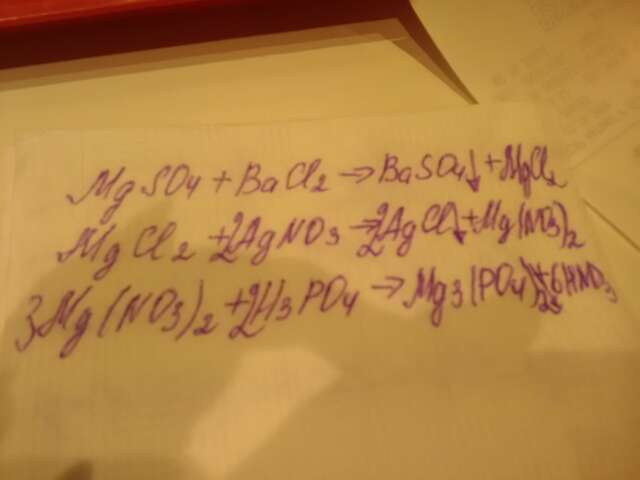 MgSO4 + BaCl2 → BaSO4↓ + MgCl2
MgCl2 + 2AgNO3 → 2AgCl↓ + Mg(NO3)2
3Mg(NO3)2 + 2H3PO4 → Mg3(PO4)2 + 6HNO3